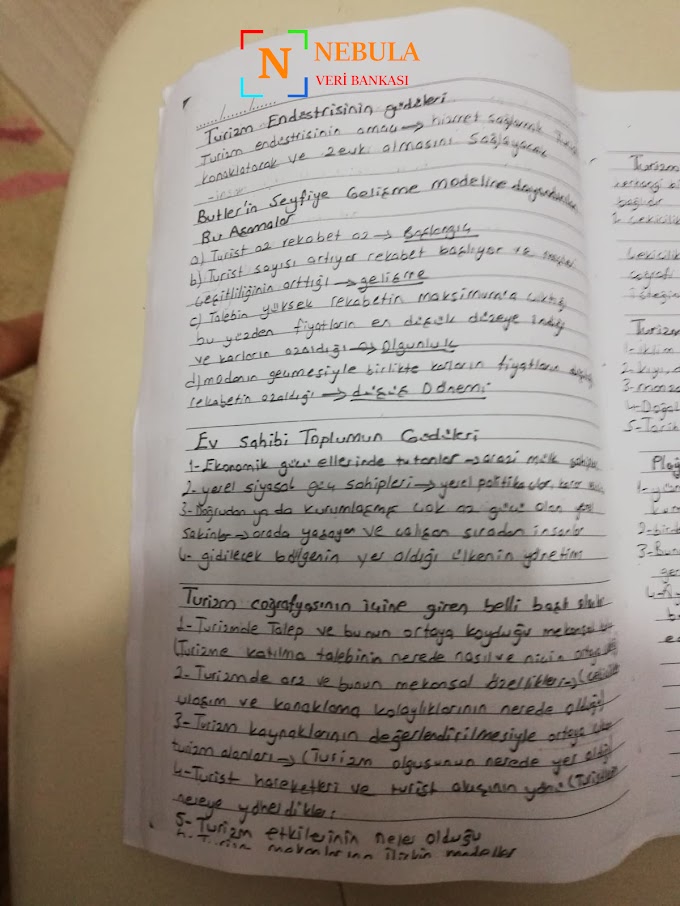 NEBULA
VERİ BANKASI
...../...../.....
Turizm Endestrisinin güdüleri
Turizm endestrisinin amacı → hizmet sağlamak
konaklatacak ve zevk almasını sağlayacak
Butler'in Seyfiye Gelişme modeline
Bu Aşamalar
a) Turist az rekabet az → Başlangıç
b) Turist sayısı artıyor rekabet başlıyor ve
çeşitliliğinin arttığı → gelişme
c) Talebin yüksek rekabetin maksimuma çıktığı
bu yüzden fiyatların en düşük düzeye indiği
ve karların azaldığı → Olgunluk
d) modanın geçmesiyle birlikte karların fiyatların
rekabetin azaldığı → düşüş Dönemi
Ev Sahibi Toplumun Güdüleri
1- Ekonomik gücü ellerinde tutanlar → arazi mülk
2- yerel siyasal güç sahipleri → yerel politikacılar, karar
3- Doğrudan ya da kurumlaşmış çok az gücü olan yerel
sakinler → orada yaşayan ve çalışan sıradan insanlar
4- gidilecek bölgenin yer aldığı ülkenin yönetim
Turizm coğrafyasının içine giren belli başlı
1- Turizmde Talep ve bunun ortaya koyduğu mekansal
(Turizme katılma talebinin nerede nasıl ve niçin ortaya
2- Turizmde arz ve bunun mekansal özellikleri →
ulaşım ve konaklama kolaylıklarının nerede olduğu)
3- Turizm kaynaklarının değerlendirilmesiyle ortaya
turizm alanları → (Turizm olgusunun nerede yer aldığı
4- Turist hareketleri ve turist akışının yönü (Turistlerin
nereye yöneldikleri
5- Turizm etkilerinin neler olduğu
Turizm mekanlarına ilişkin modeller
Turizm
herhangi bi
bağlıdır
coğrafi
Turizm
1- iklim
3- manza
4- Doğal
5- Tarih
2- birde
3- Bun